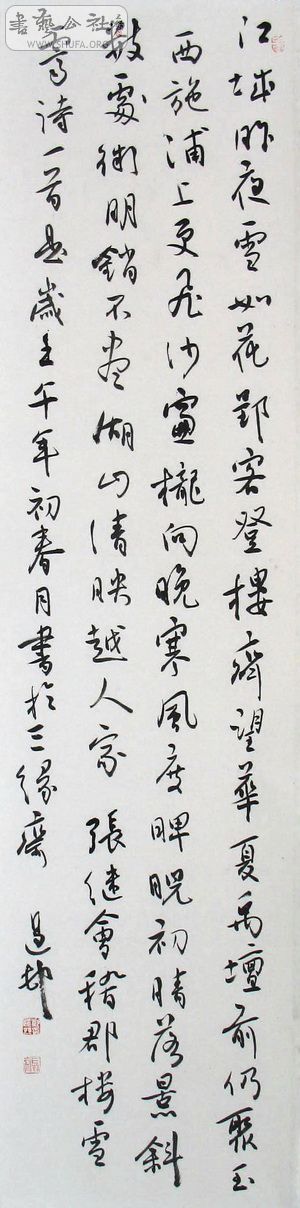 江城昨夜雪如花郢客登樓齊望華夏禹壇前仍聚玉
西施浦上更飛沙櫳向晚寒風度睥睨初晴落景斜
數處微明銷不盡湖山清映越人家 張繼會稽郡樓雪
霽詩一首 歲壬午年初春月書於三緣齋
書藝公社